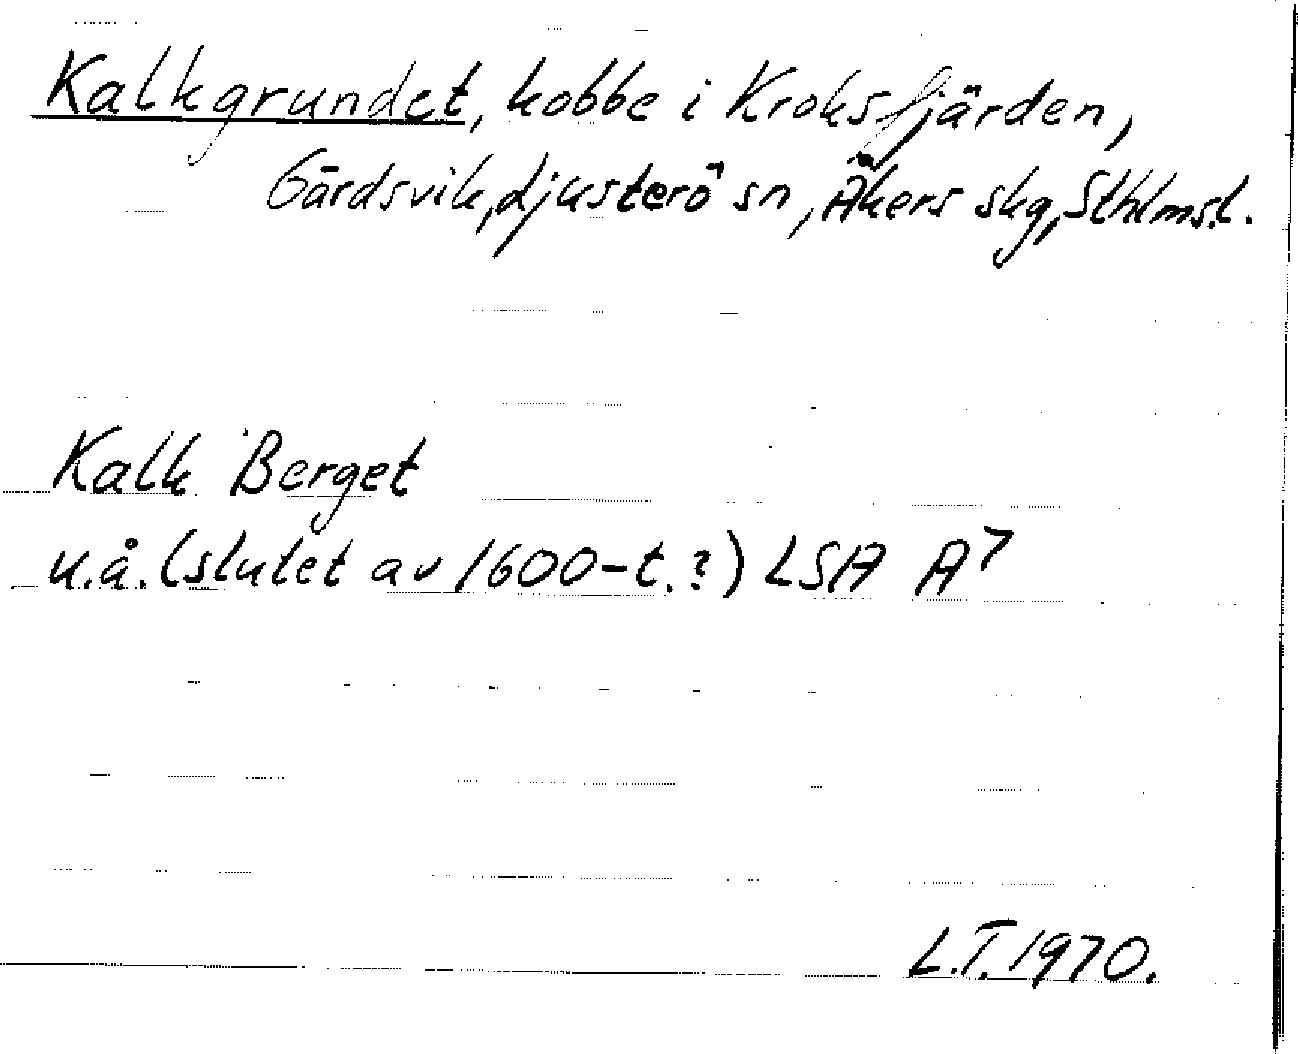 Kalkgrundet, kobbe i Kroksfjärden,
Gärdsvik, Ljusterö sn, Åkers skg, Sthlms l.
Kalk Berget
u.å. (slutet av 1600-t.?) LSA A7
L.T. 1970.